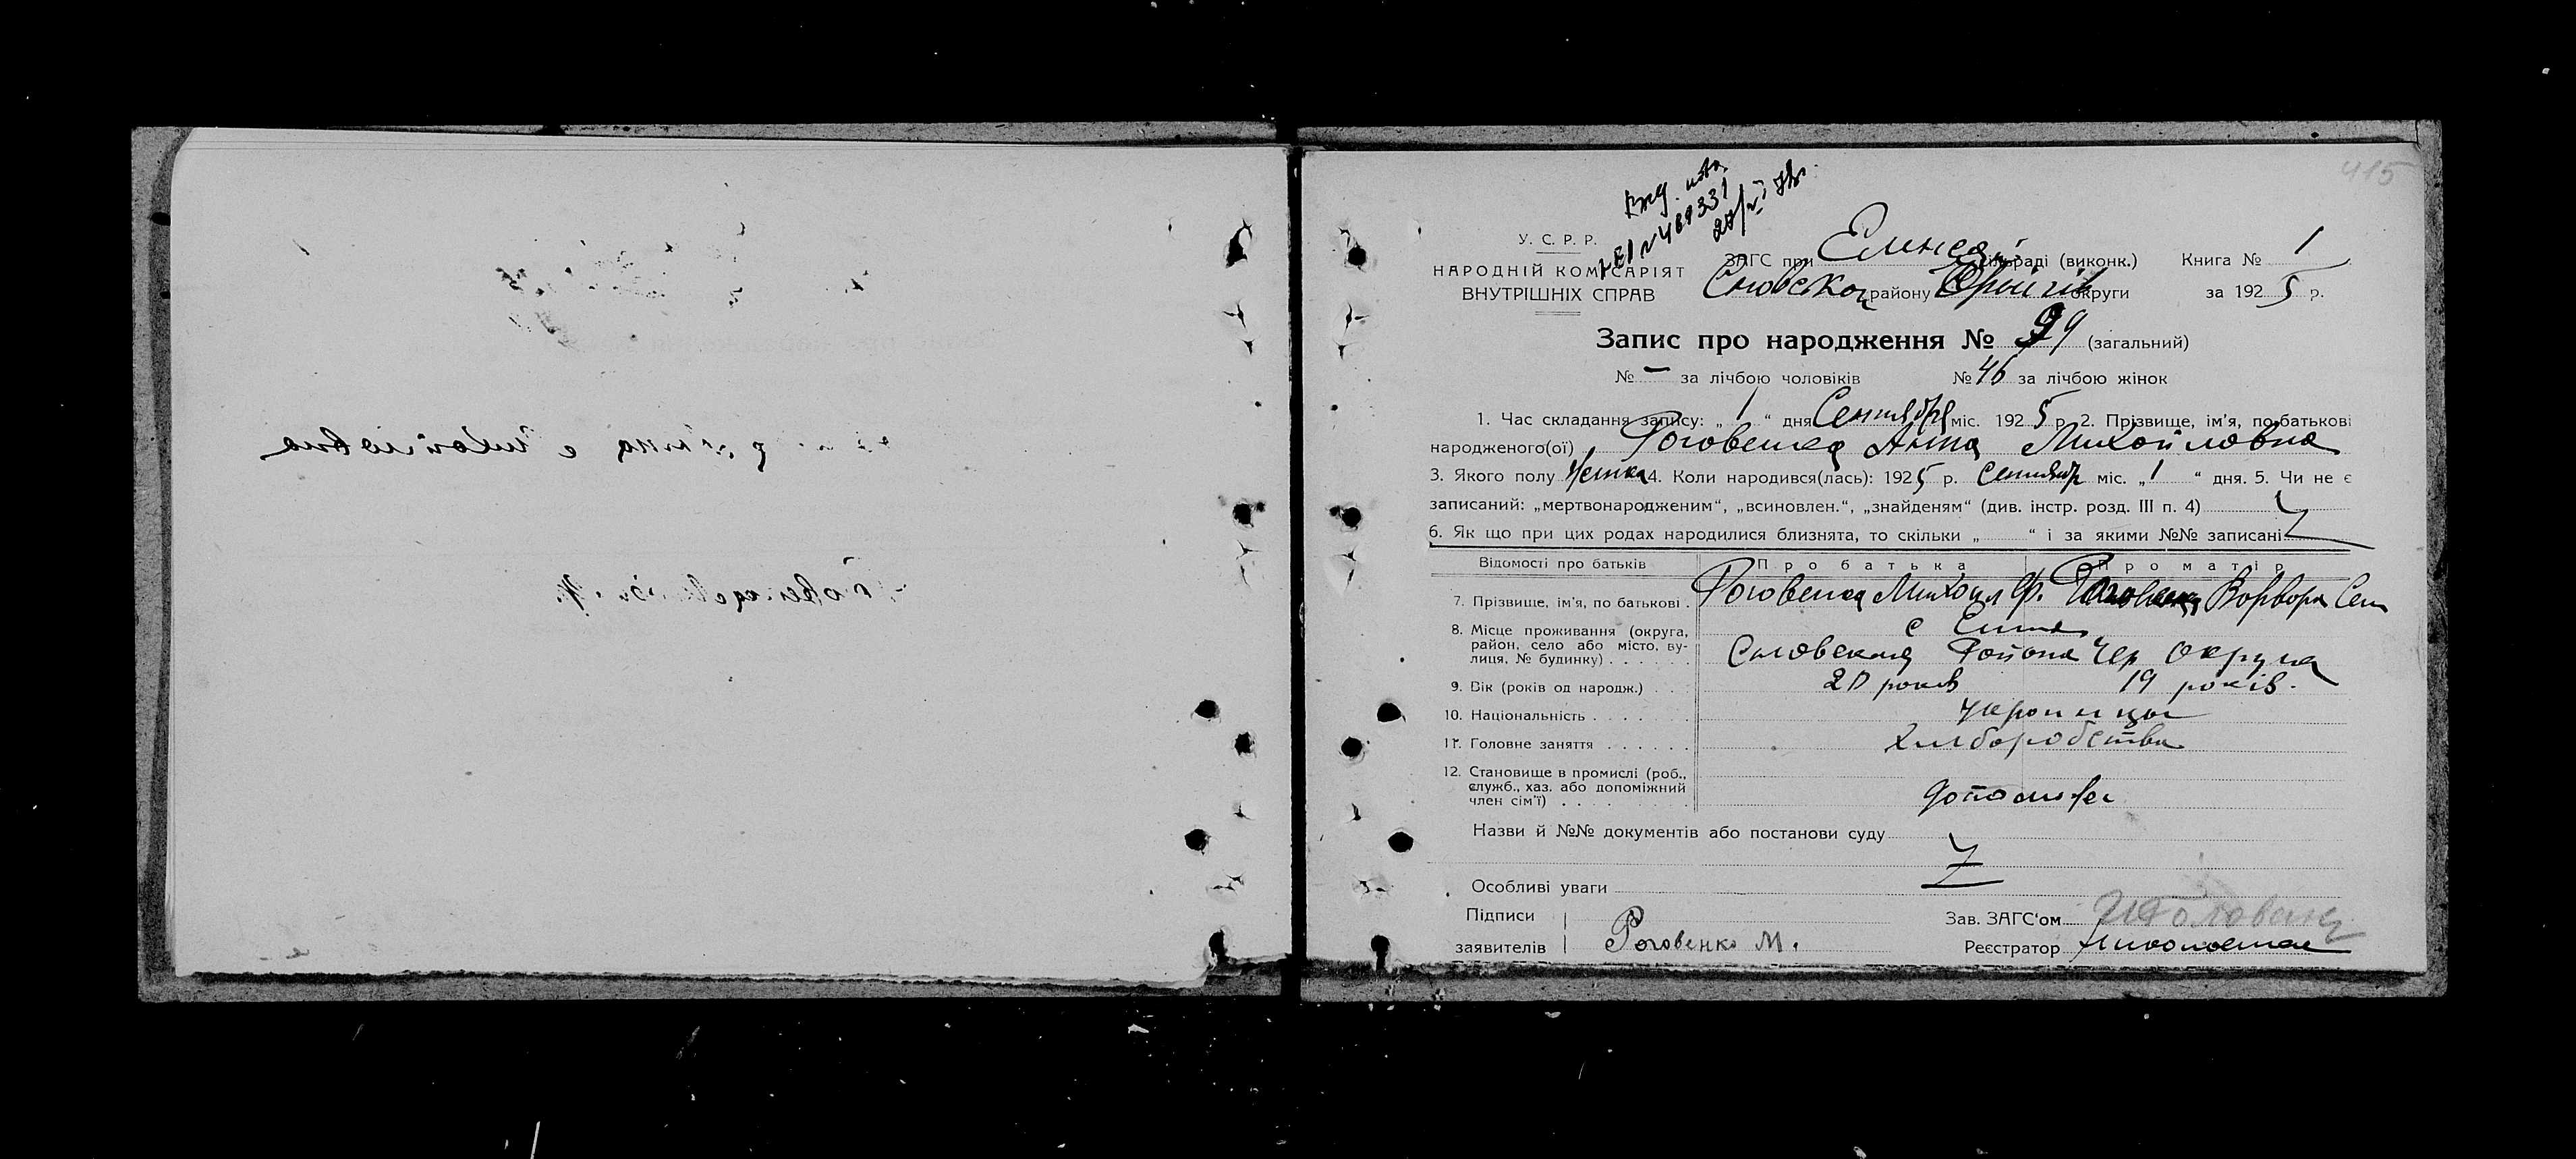 415
У. С. Р. Р.
НАРОДНІЙ КОМІСАРІЯТ
ВНУТРІШНІХ СПРАВ
ЗАГС при сільраді (виконк.) Книга № 1
Сновского району округи за 1925 р.
Запис про народження № 99 (загальний)
№ – за лічбою чоловіків № 46 за лічбою жінок
1. Час складання запису: „ 1 “ дня Сентября міс. 1925 р. 2. Прізвище, ім'я, по батькові
народженого(ої) Роговенко Анна Михайловна
3. Якого полу 4. Коли народився(лась): 1925 р. Сентябр міс. „ 1 “ дня. 5. Чи не є
записаний: „мертвонародженим“, „всиновлен.“, „знайденям“ (див. інстр. розд. III п. 4)
6. Як що при цих родах народилися близнята, то скільки „ “ і за якими №№ записані
Відомості про батьків Про батька Про матір
7. Прізвище, ім'я, по батькові . Роговенко Михаил Ф. Роговенко Варвара Сем
8. Місце проживання (округа, район, село або місто, вулиця, № будинку) . . . . . . с
Сновского Района Чер Округа
9. Вік (років од народж.) . . . 20 років 19 років.
10. Національність . . . . . Украинцы
11. Головне заняття . . . . . . хлиборобства
12. Становище в промислі (роб., служб., хаз. або допоміжний член сім'ї) . . . .
Назви й №№ документів або постанови суду
Особливі уваги
Підписи заявителів Роговенко М.
Зав. ЗАГС'ом
Реєстратор